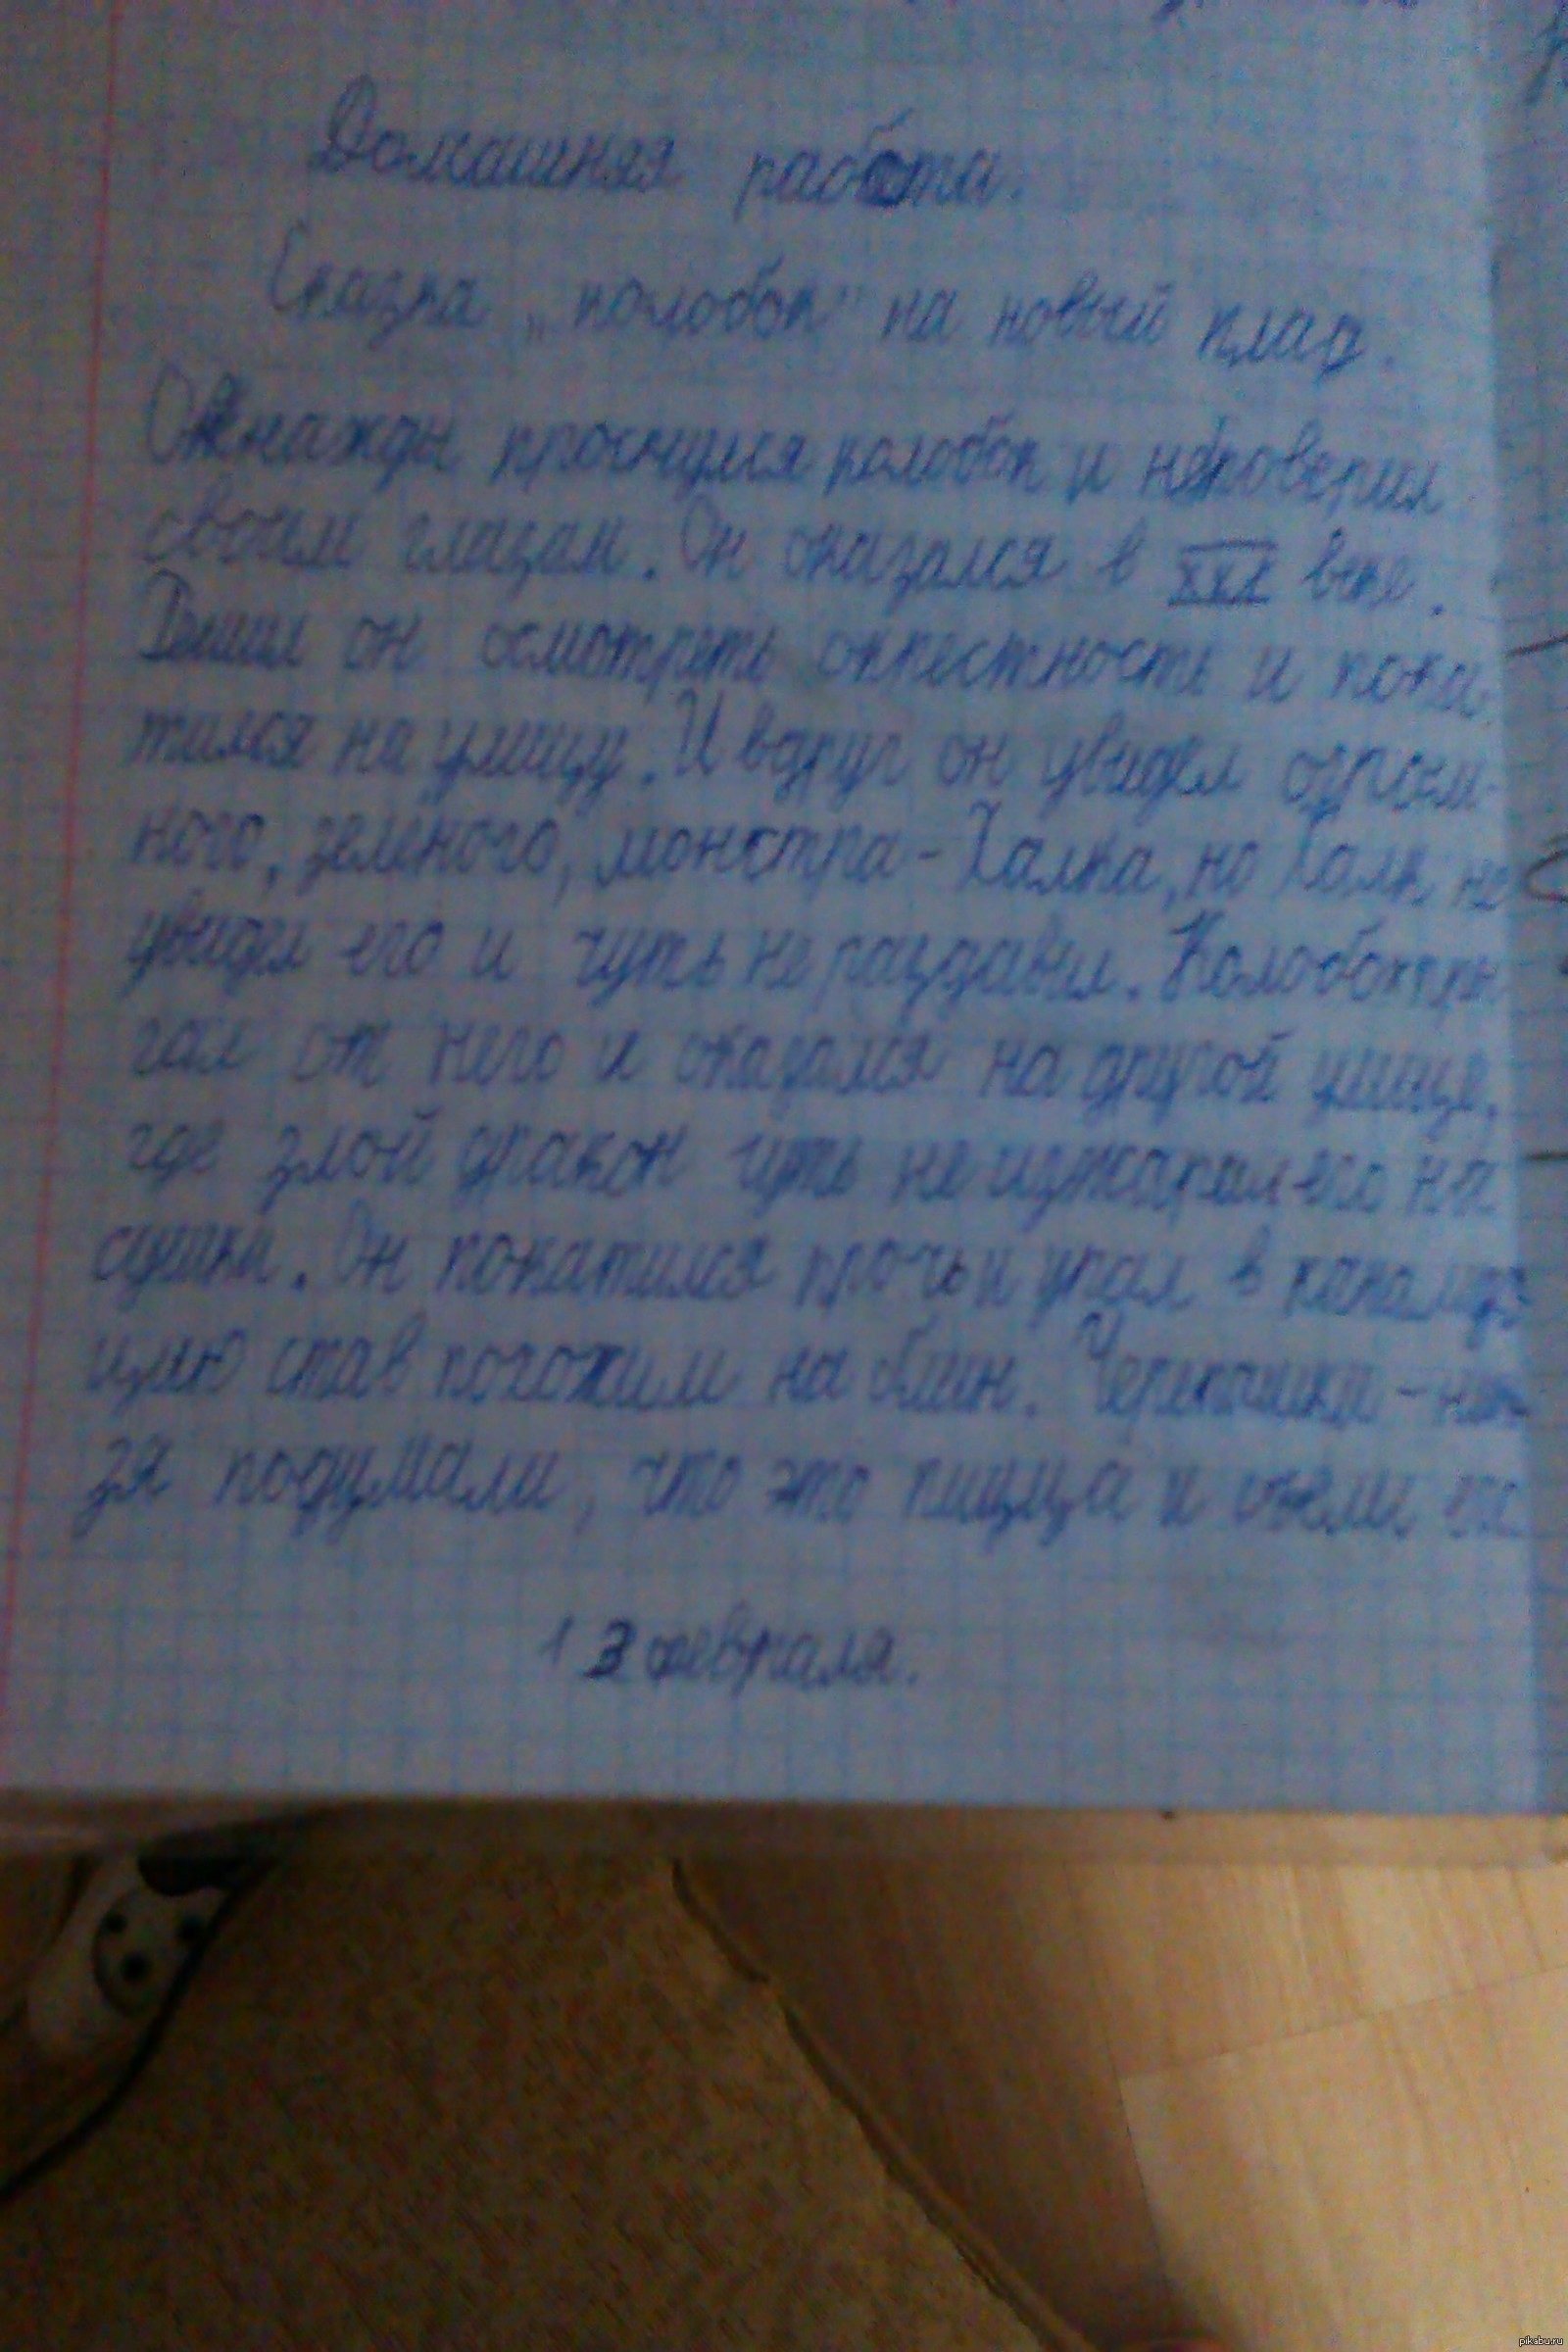 Домашняя работа.
Сказка „колобок" на новый лад.
Однажды проснулся колобок и неповерил
своим глазам. Он оказался в XXI веке.
Решил он осмотреть окрестность и пока-
тился на улицу. И вдруг он увидел огром-
ного, зелёного, монстра - Халка, но Халк не
увидел его и чуть не раздавил. Колобок
от него и оказался на другой улице,
где злой дракон чуть не изжарил его на
сушки. Он покатился прочь и упал в
став похожим на блин. Черепашки -
зя подумали, что это пицца и съели его
13 февраля.
pikabu.ru